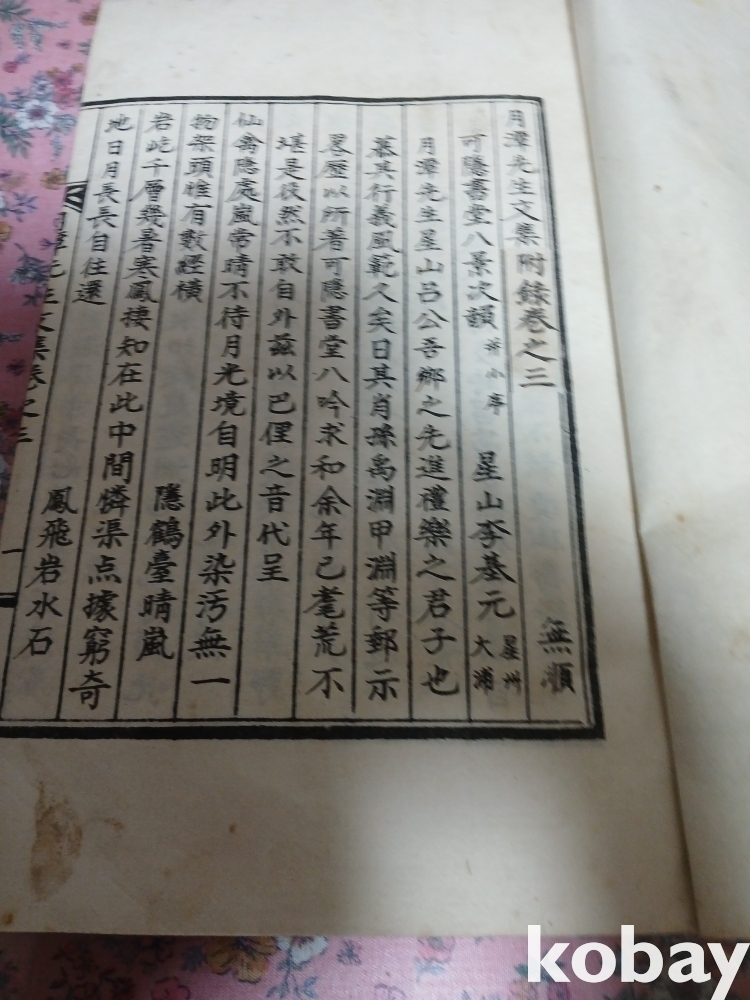 月潭先生文集附錄卷之三
無順
可隱書堂八景次韻 幷小序 星山李基元 星州大浦
月潭先生星山呂公吾鄕之先進禮樂之君子也
慕其行義風範久矣日其肖孫禹淵甲淵等郵示
墓歷以所著可隱書堂八吟求和余年已耄荒不
堪是役然不敢自外玆以巴俚之音代呈
仙禽隱處嵐常晴不待月光境自明此外染汚無一
物架頭惟有數經橫 隱鶴臺晴嵐
岩屹千層幾暑寒鳳棲知在此中間憐渠点據窮奇
地日月長長自住還 鳳飛岩水石
月潭先生文集卷之三
一
kobay